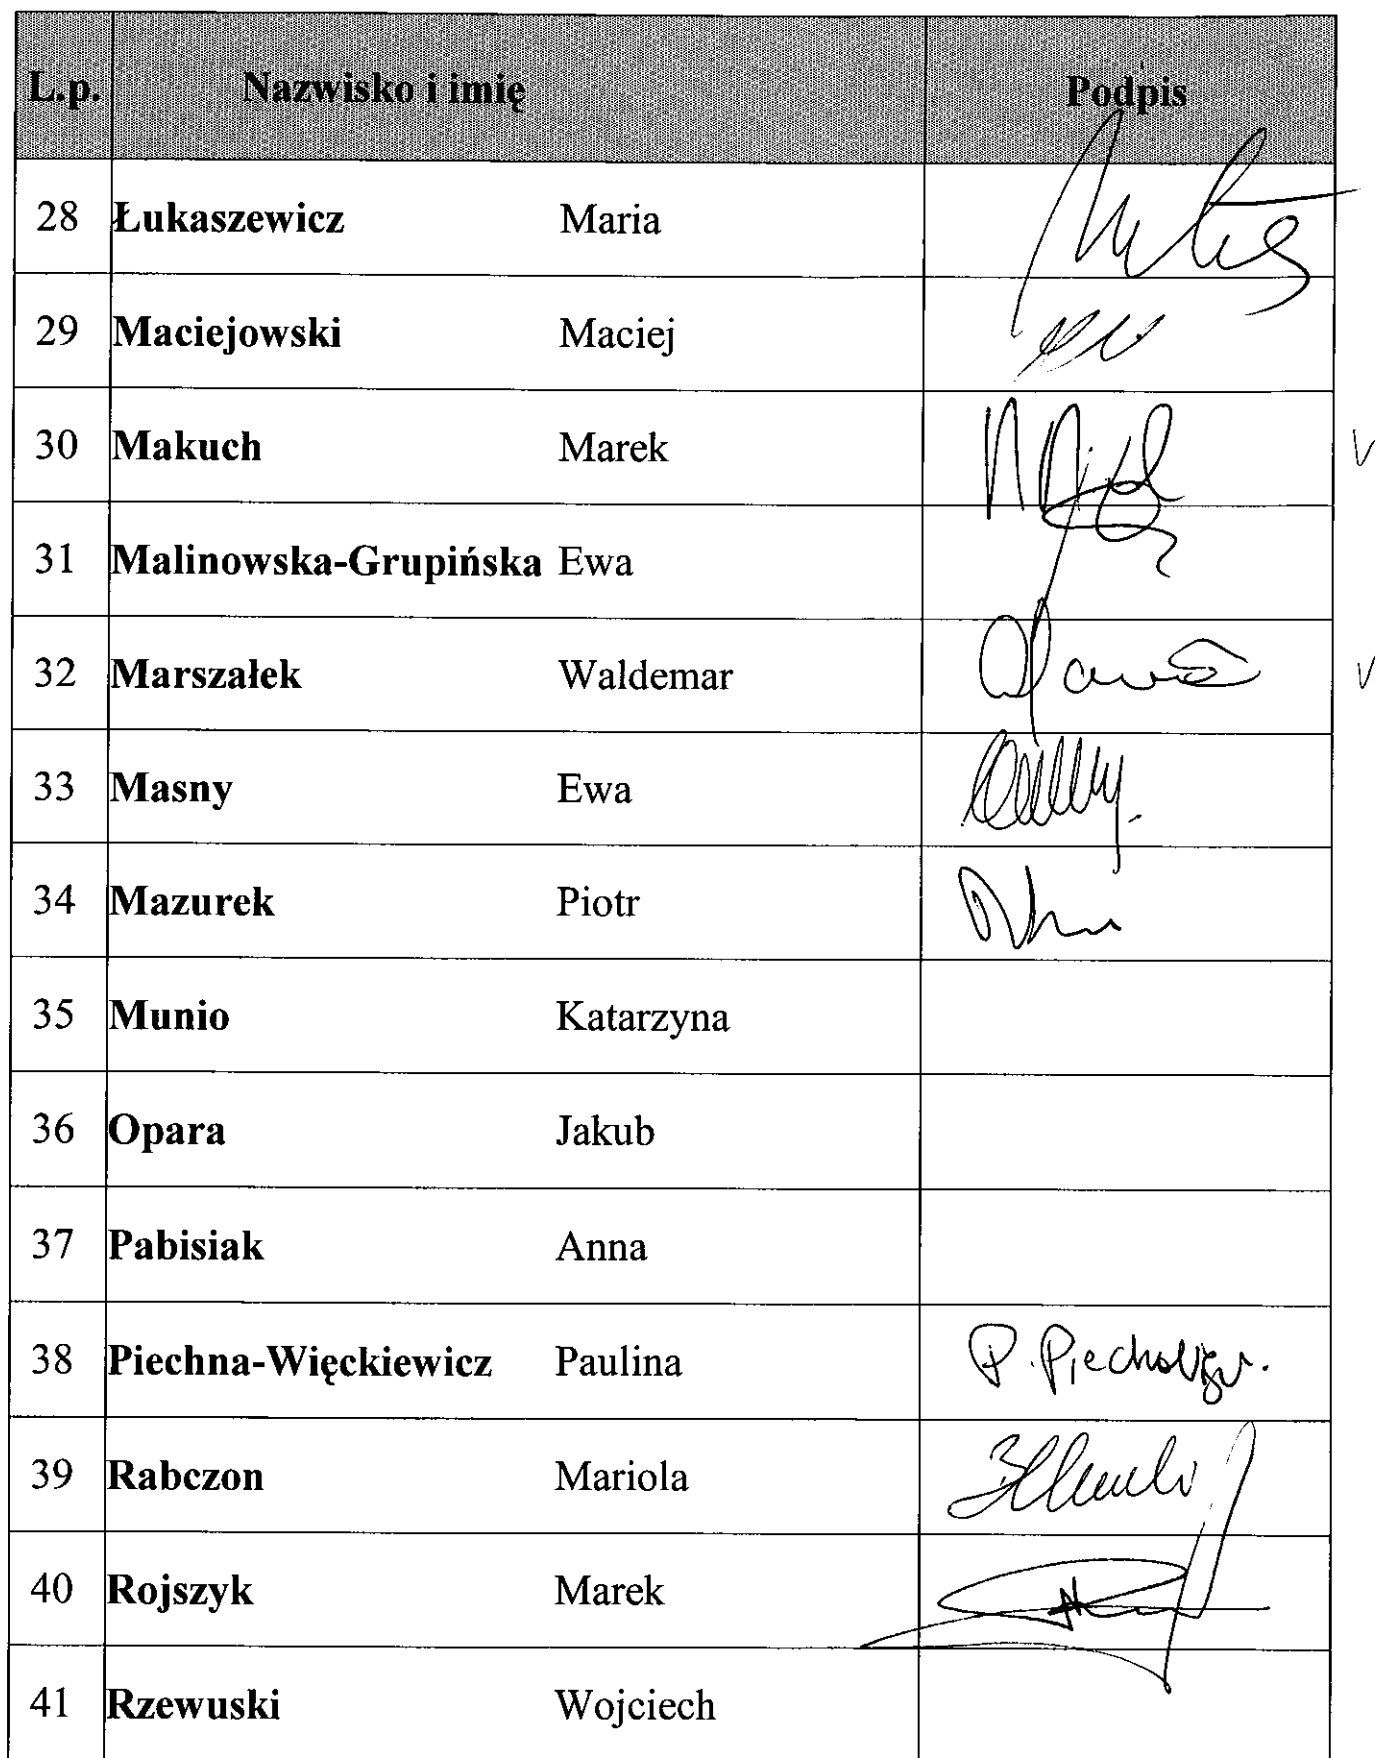 L.p. Nazwisko i imię Podpis
28 Łukaszewicz Maria
29 Maciejowski Maciej
30 Makuch Marek
31 Malinowska-Grupińska Ewa
32 Marszałek Waldemar
33 Masny Ewa
34 Mazurek Piotr
35 Munio Katarzyna
36 Opara Jakub
37 Pabisiak Anna
38 Piechna-Więckiewicz Paulina P.
39 Rabczon Mariola
40 Rojszyk Marek
41 Rzewuski Wojciech